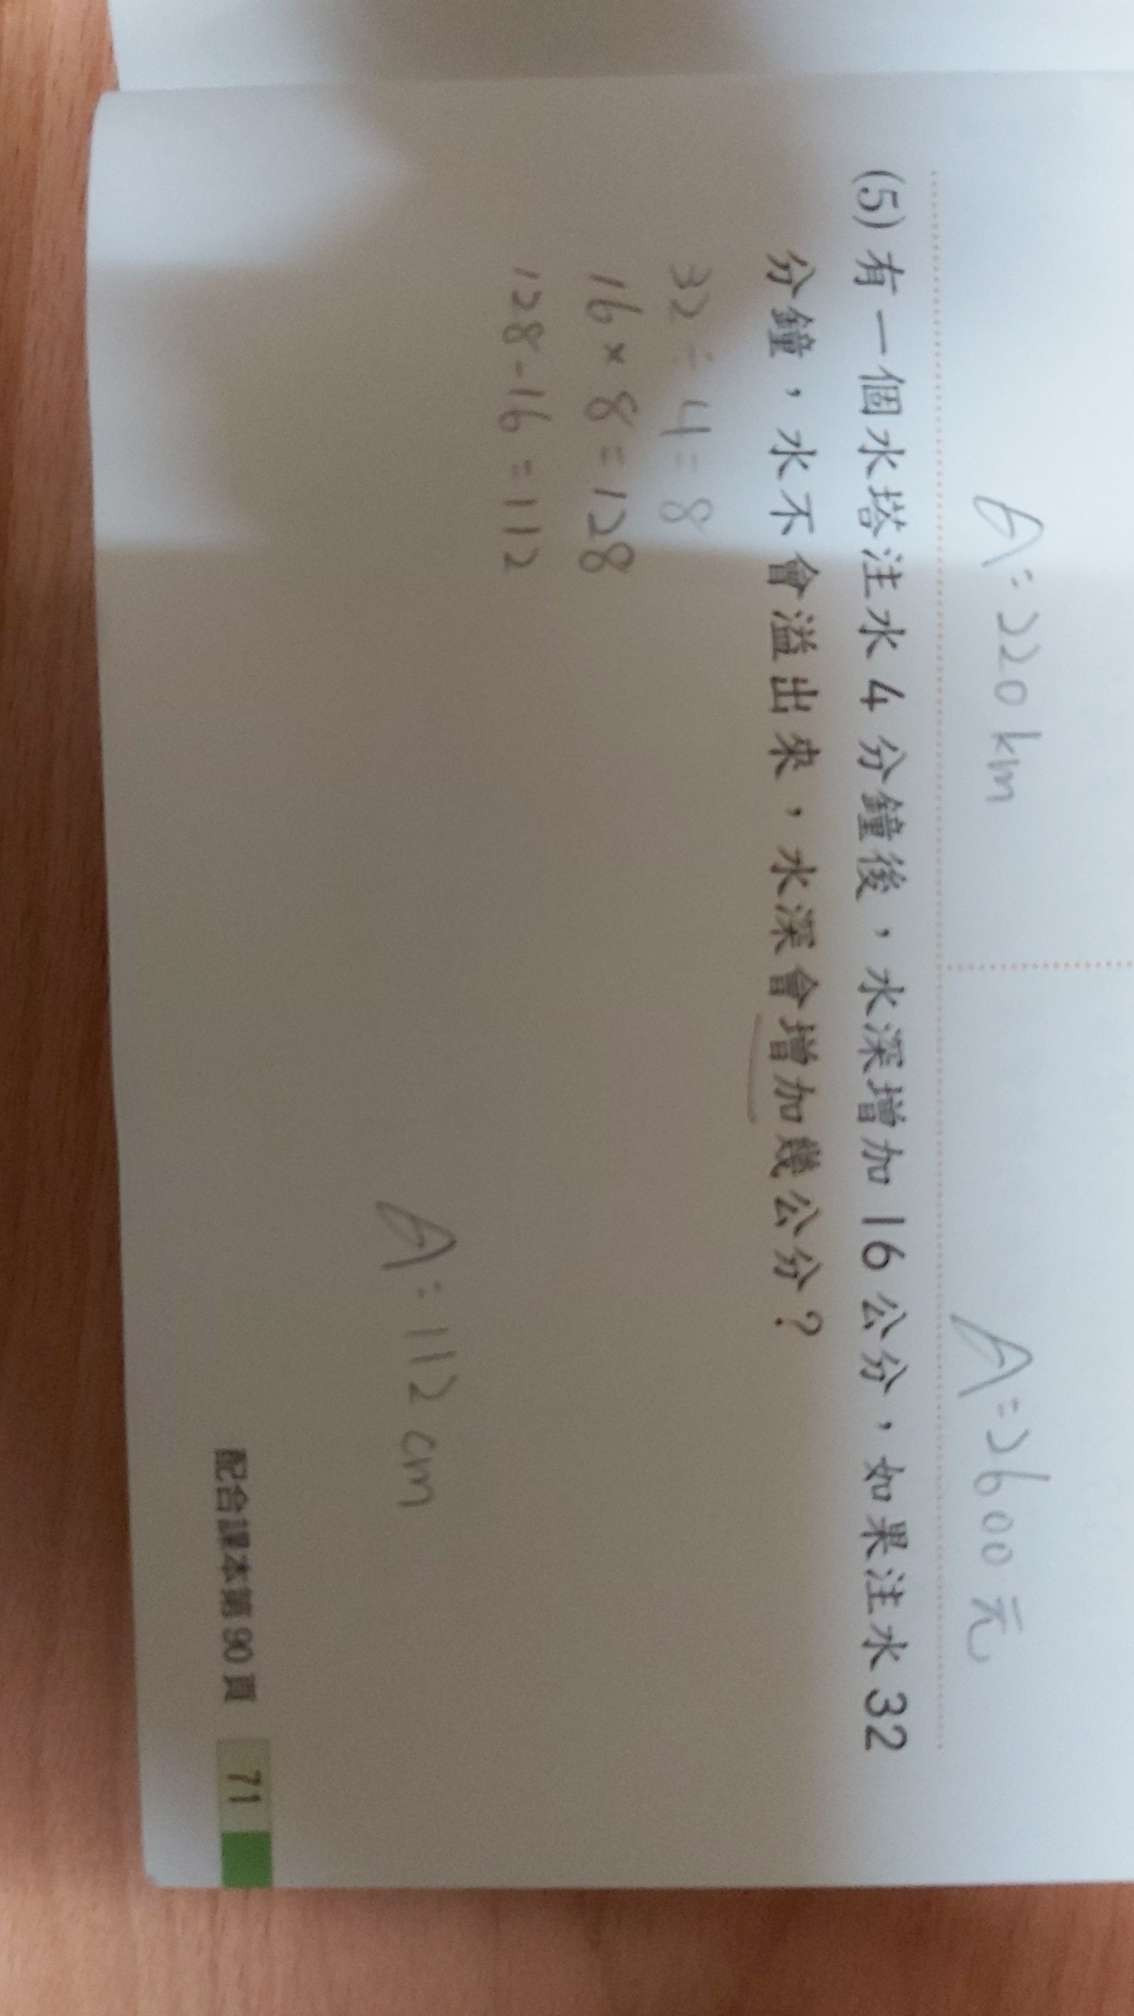 A=220km
A=2600元
(5)有一個水塔注水4分鐘後，水深增加16公分，如果注水32
分鐘，水不會溢出來，水深會增加幾公分？
32÷4=8
16×8=128
128-16=112
A:112cm
配合課本第90頁 71